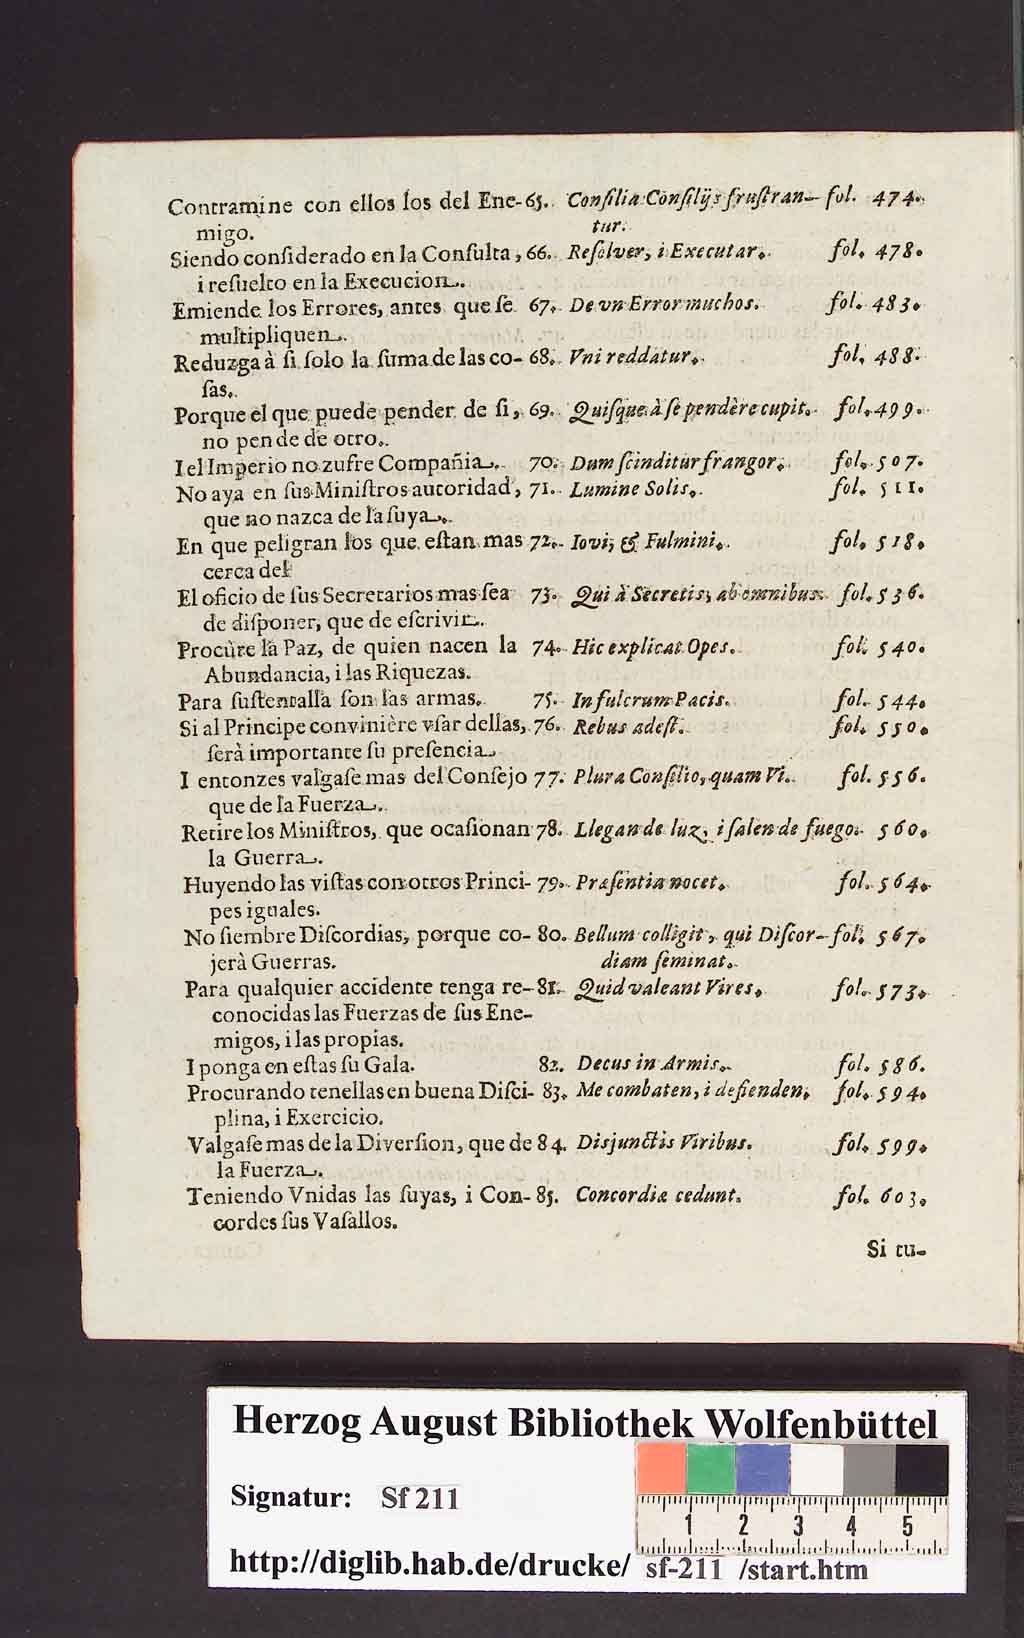 Contramine con ellos los del Ene- 65. Conſilia Conſilijs fruſtran- fol. 474.
migo. tur.
Siendo conſiderado en la Conſulta, 66. Reſolver, i Executar. fol. 478.
i reſuelto en la Execucion.
Emiende los Errores, antes que ſe 67. De vn Error muchos. fol. 483.
multipliquen.
Reduzga à ſi ſolo la ſuma de las co- 68. Vni reddatur. fol. 488.
ſas.
Porque el que puede pender de ſi, 69. Quiſque à ſe pendère cupit. fol. 499.
no pende de otro.
I el Imperio no zufre Compañia. 70. Dum ſcinditur frangor. fol. 507.
No aya en ſus Miniſtros autoridad, 71. Lumine Solis. fol. 511.
que no nazca de la ſuya.
En que peligran los que eſtan mas 72. Iovi, & Fulmini. fol. 518.
cerca del
El oficio de ſus Secretarios mas ſea 73. Qui à Secretis, ab omnibus. fol. 536.
de diſponer, que de eſcrivir.
Procùre la Paz, de quien nacen la 74. Hic explicat Opes. fol. 540.
Abundancia, i las Riquezas.
Para ſuſtentalla ſon las armas. 75. In fulcrum Pacis. fol. 544.
Si al Principe convinière vſar dellas, 76. Rebus adeſt. fol. 550.
ſerà importante ſu preſencia.
I entonzes valgaſe mas del Conſejo 77. Plura Conſilio, quam Vi. fol. 556.
que de la Fuerza.
Retire los Miniſtros, que ocaſionan 78. Llegan de luz, i ſalen de fuego. 560.
la Guerra.
Huyendo las viſtas con otros Princi- 79. Præſentia nocet. fol. 564.
pes iguales.
No ſiembre Diſcordias, porque co- 80. Bellum colligit, qui Diſcor- fol. 567.
jerà Guerras. diam ſeminat.
Para qualquier accidente tenga re- 81. Quid valeant Vires. fol. 573.
conocidas las Fuerzas de ſus Ene-
migos, i las propias.
I ponga en eſtas ſu Gala. 82. Decus in Armis. fol. 586.
Procurando tenellas en buena Diſci- 83. Me combaten, i defienden. fol. 594.
plina, i Exercicio.
Valgaſe mas de la Diverſion, que de 84. Disjunctis Viribus. fol. 599.
la Fuerza.
Teniendo Vnidas las ſuyas, i Con- 85. Concordiæ cedunt. fol. 603.
cordes ſus Vaſallos.
Si tu-
Herzog August Bibliothek Wolfenbüttel
Signatur: Sf 211
1 2 3 4 5
http://diglib.hab.de/drucke/ sf-211 /start.htm